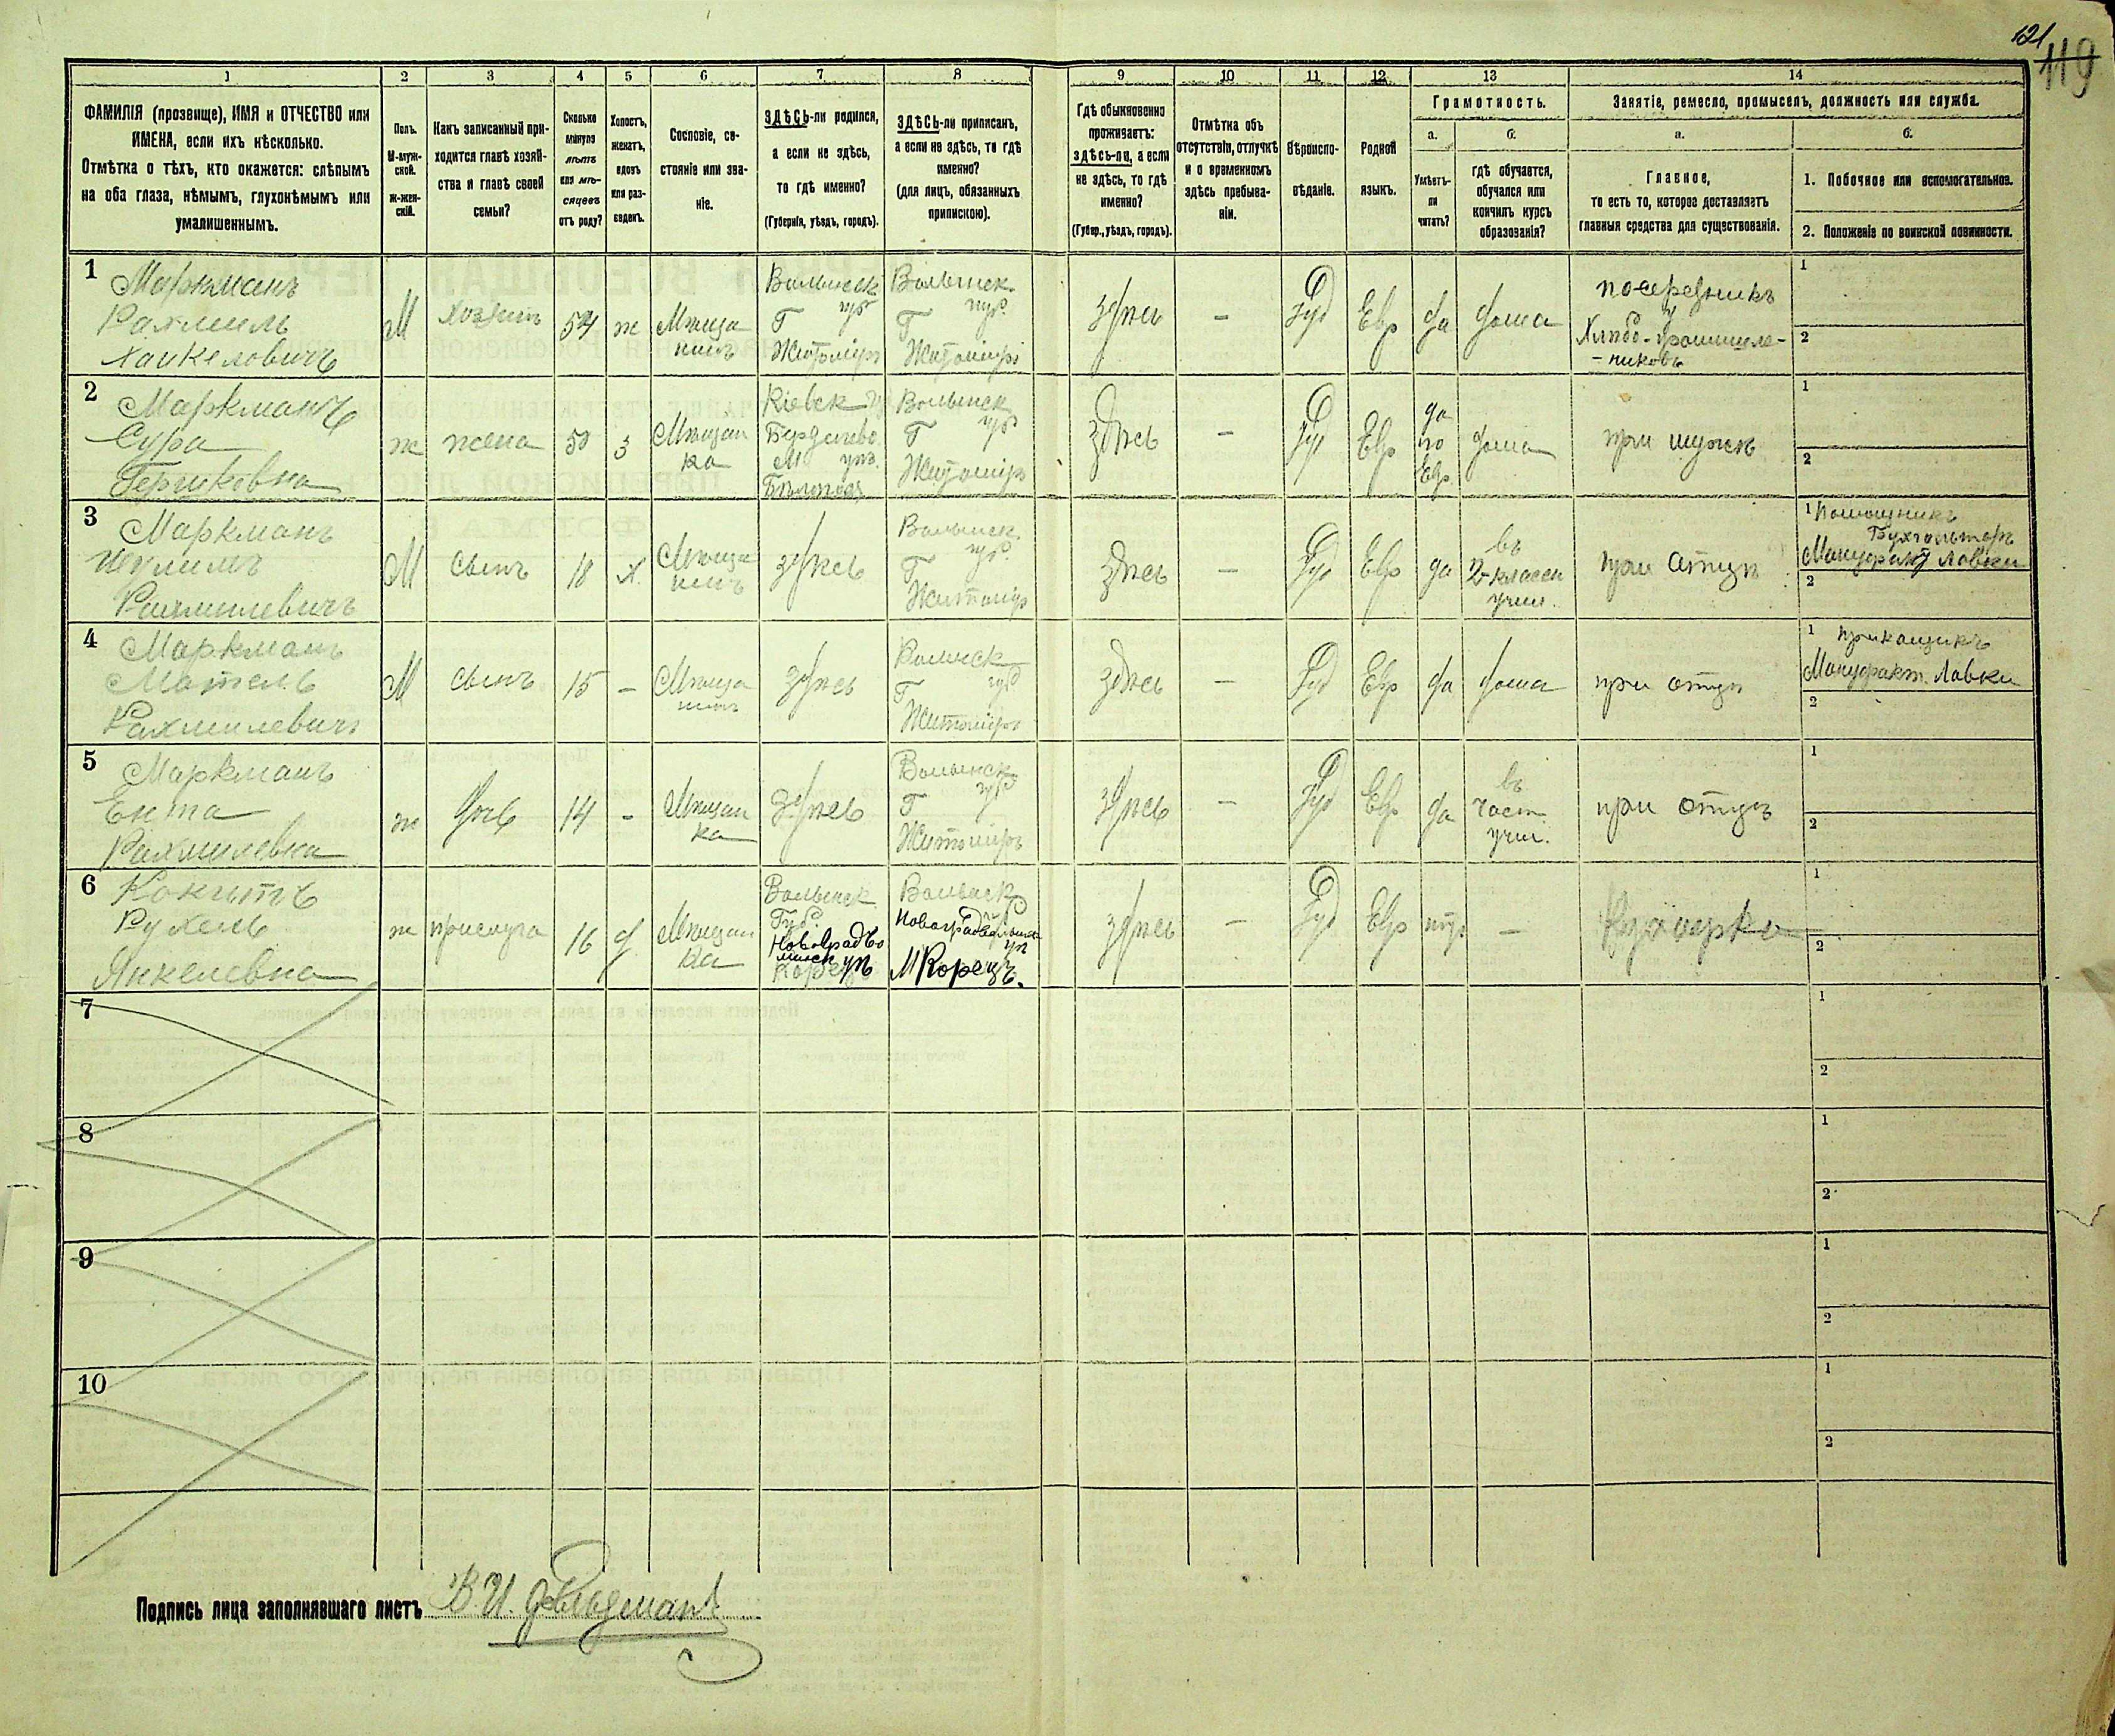 121
119
1
2
3
4
5
6
7
8
9
10
11
12
13
14
ФАМИЛІЯ (прозвище), ИМЯ и ОТЧЕСТВО или
ИМЕНА, если ихъ нѣсколько.
Отмѣтка о тѣхъ, кто окажется: слѣпымъ
на оба глаза, нѣмымъ, глухонѣмымъ или
умалишеннымъ.
Полъ.
М-муж-
ской.
Ж-жен-
скій.
Какъ записанный при-
ходится главѣ хозяй-
ства и главѣ своей
семьи?
Сколько
минуло
лѣтъ
или мѣ-
сяцевъ
отъ роду?
Холостъ,
женатъ,
вдовъ
или раз-
веденъ.
Сословіе, со-
стояніе или зва-
ніе.
ЗДѢСЬ-ли родился,
а если не здѣсь,
то гдѣ именно?
(Губернія, уѣздъ, городъ).
ЗДѢСЬ-ли приписанъ,
а если не здѣсь, то гдѣ
именно?
(для лицъ, обязанныхъ
припискою).
Гдѣ обыкновенно
проживаетъ:
здѣсь-ли, а если
не здѣсь, то гдѣ
именно?
(Губер., уѣздъ, городъ).
Отмѣтка объ
отсутствіи, отлучкѣ
и о временномъ
здѣсь пребыва-
ніи.
Вѣроиспо-
вѣданіе.
Родной
языкъ.
Грамотность.
а.
Умѣетъ-
ли
читать?
б.
гдѣ обучается,
обучался или
кончилъ курсъ
образованія?
Занятіе, ремесло, промыселъ, должность или служба.
а.
Главное,
то есть то, которое доставляетъ
главныя средства для существованія.
б.
1. Побочное или вспомогательное.
2. Положеніе по воинской повинности.
1
Маркманъ
Рахмиль
Хаикеловичъ
М
хозяинъ
54
ж
Мѣща
нинъ
Волынск
губ
Г
Житоміръ
Волынск.
губ.
Г
Житоміръ
здѣсь
–
Іуд
Евр
да
дома
посредникъ
у
Хлѣбо-промышле-
-никовъ
1
2
2
Маркманъ
Сура
Гершковна
ж
жена
50
з
Мѣщан
ка
Кіевск
Бердичево
М. уѣз.
Волынск
губ
Г
Житоміръ
здѣсь
–
Іуд
Евр
да
по
Евр.
дома
при мужѣ
1
2
3
Маркманъ
Рахмилевичъ
М
сынъ
18
х.
Мѣща
нинъ
здѣсь
Волынск.
губ.
Г
Житоміръ
здѣсь
–
Іуд
Евр
да
въ
2-классн
учил.
при отцѣ
1 Помощникъ
Бухгалтера
Мануфакт Лавки
2
4
Маркманъ
Мотель
Рахмилевичъ
М
сынъ
15
–
Мѣща
нинъ
здѣсь
Волынск
губ
Г
Житоміръ
здѣсь
–
Іуд
Евр
да
дома
при отцѣ
1 прикащикъ
Мануфакт. Лавки
2
5
Маркманъ
Ента
Рахмилевна
ж
дочь
14
–
Мѣщан
ка
здѣсь
Волынск
губ
Г
Житоміръ
здѣсь
–
Іуд
Евр
да
въ
част.
учил.
при отцѣ
1
2
6
Рухель
Янкелевна
ж
прислуга
16
д
Мѣщан
ка
Волынск
Губ.
Новоградво
лынск уѣ
Корец
Волынск
губ
Новоградволынск
уѣ
М Корецъ.
здѣсь
–
Іуд
Евр
нѣт
–
Кухарка
1
2
7
1
2
8
1
2
9
1
2
10
1
2
Подпись лица заполнявшаго листъ В. И. Фельдманъ